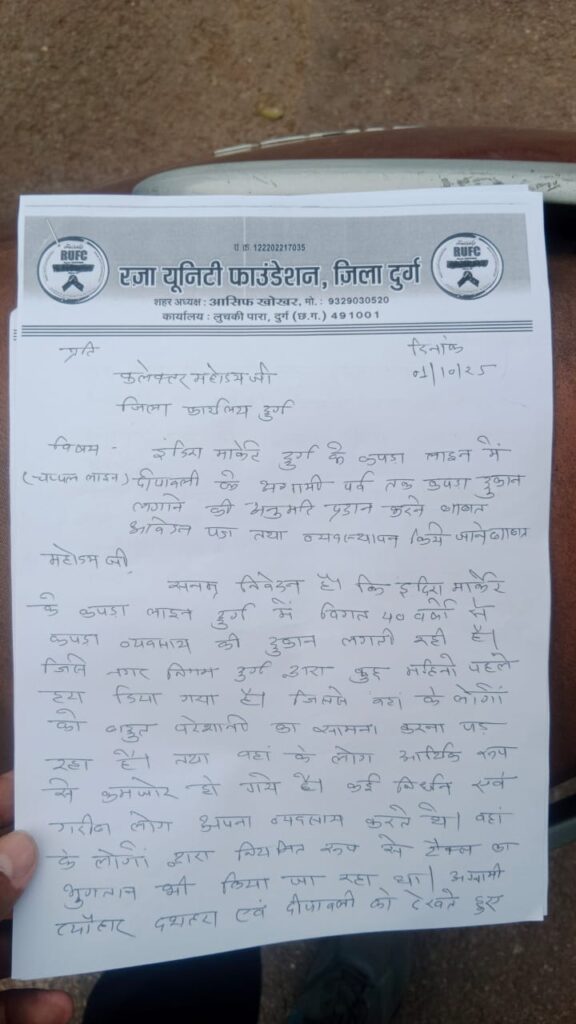 RUFC
RUFC
पं.क्र. 122202217035
रजा यूनिटी फाउंडेशन, जिला दुर्ग
शहर अध्यक्ष : आसिफ खोखर, मो. : 9329030520
कार्यालय : लुचकी पारा, दुर्ग (छ.ग.) 491001
प्रति दिनांक
कलेक्टर महोदय जी 01/10/25
जिला कार्यालय दुर्ग
विषय - इंदिरा मार्केट दुर्ग के कपडा लाइन में
(-चप्पल लाइन) दीपावली के अगामी पर्व तक कपडा दुकान
लगाने की अनुमति प्रदान करने बाबत
आवेदन पत्र तथा व्यवस्थापन किये जाने बाबत
महोदय जी,
सनम्र निवेदन है। कि इंदिरा मार्केट
के कपडा लाइन दुर्ग में विगत 40 वर्षो से
कपडा व्यवसाय की दुकान लगती रही है।
जिसे नगर निगम दुर्ग द्वारा कुछ महिनो पहले
हटा दिया गया है। जिससे वहां के लोगों
को बहुत परेशानी का सामना करना पड़
रहा है। तथा वहां के लोग आर्थिक रूप
से कमजोर हो गये है। कई निर्धन एवं
गरीब लोग अपना व्यवसाय करते थे। वहां
के लोगों द्वारा नियमित रूप से टैक्स का
भुगतान भी किया जा रहा था। अगामी
त्यौहार दशहरा एवं दीपावली को देखते हुए